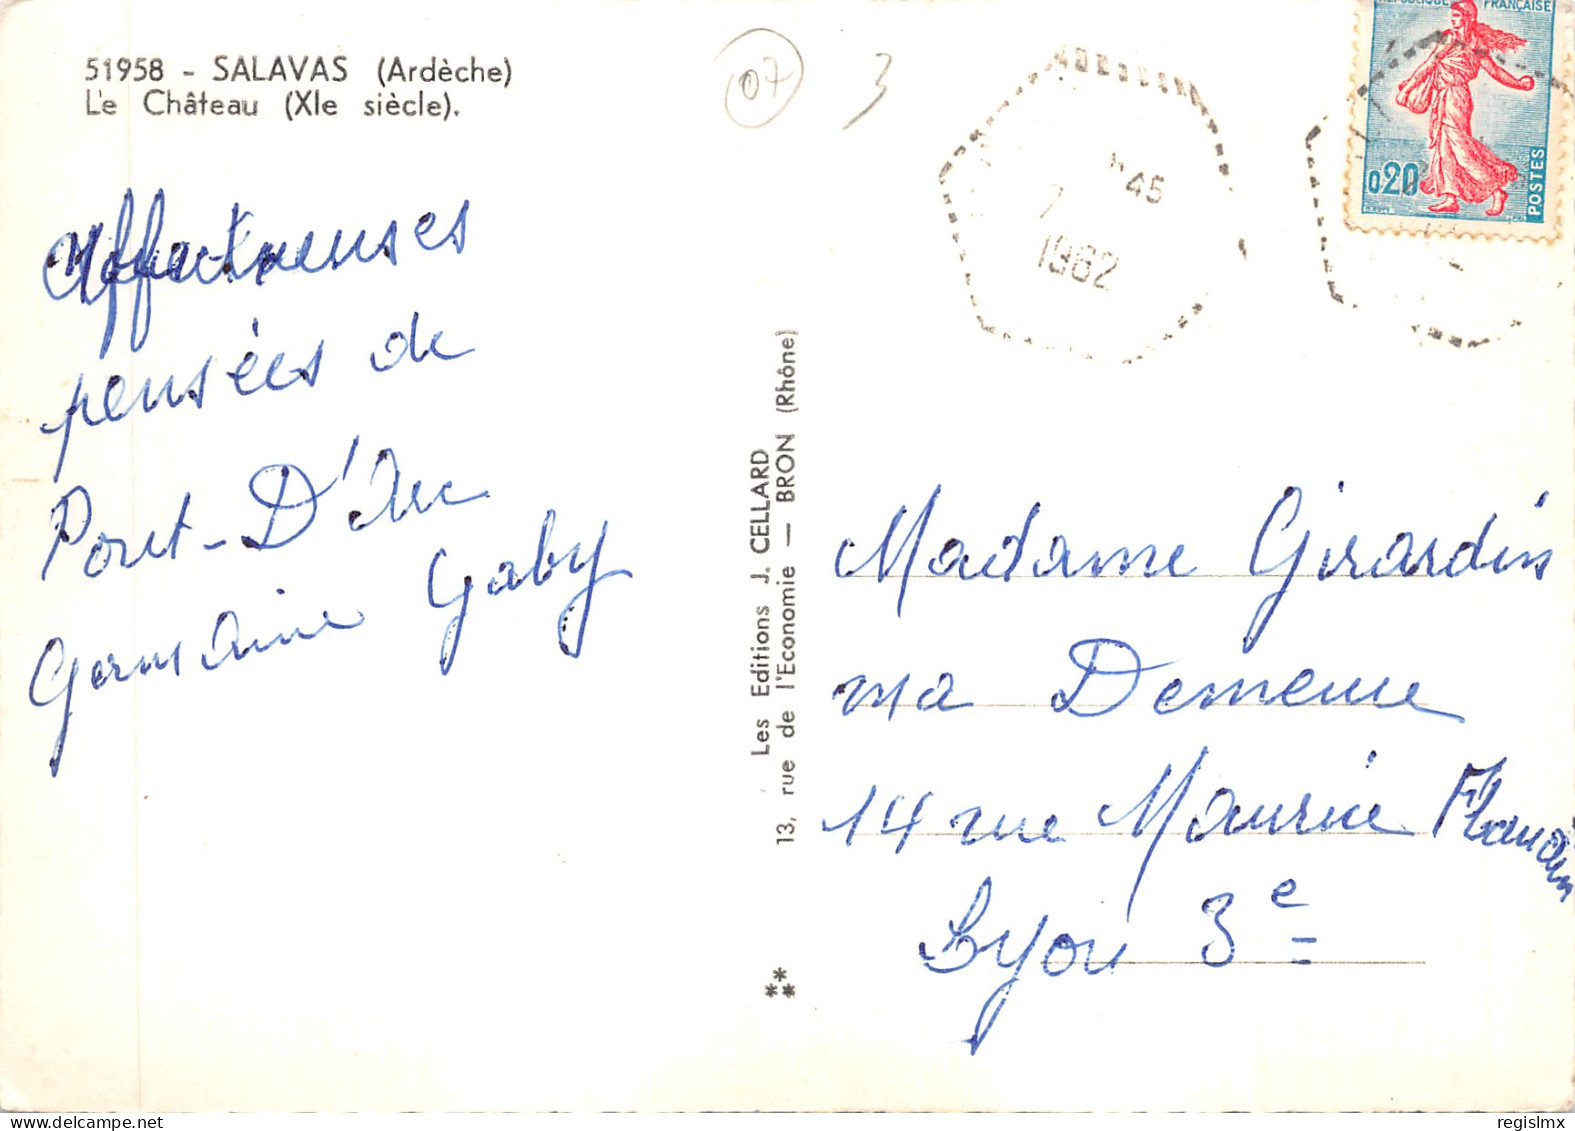 51958 - SALAVAS (Ardèche)
L'e Château (XIe siècle).
07
3
RÉPUBLIQUE FRANÇAISE
0,20
POSTES
45
7
1962
Affectueuses
pensées de
Pont-D'Arc
Germaine Gaby
Les Editions J. CELLARD
13, rue de l'Economie — BRON (Rhône)
Madame Girardin
ma Demeure
14 rue Maurice Flandin
Lyon 3e
regisImx